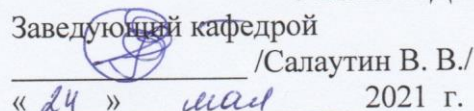 Заведующий кафедрой
/Салаутин В. В./
« 24 » мая 2021 г.